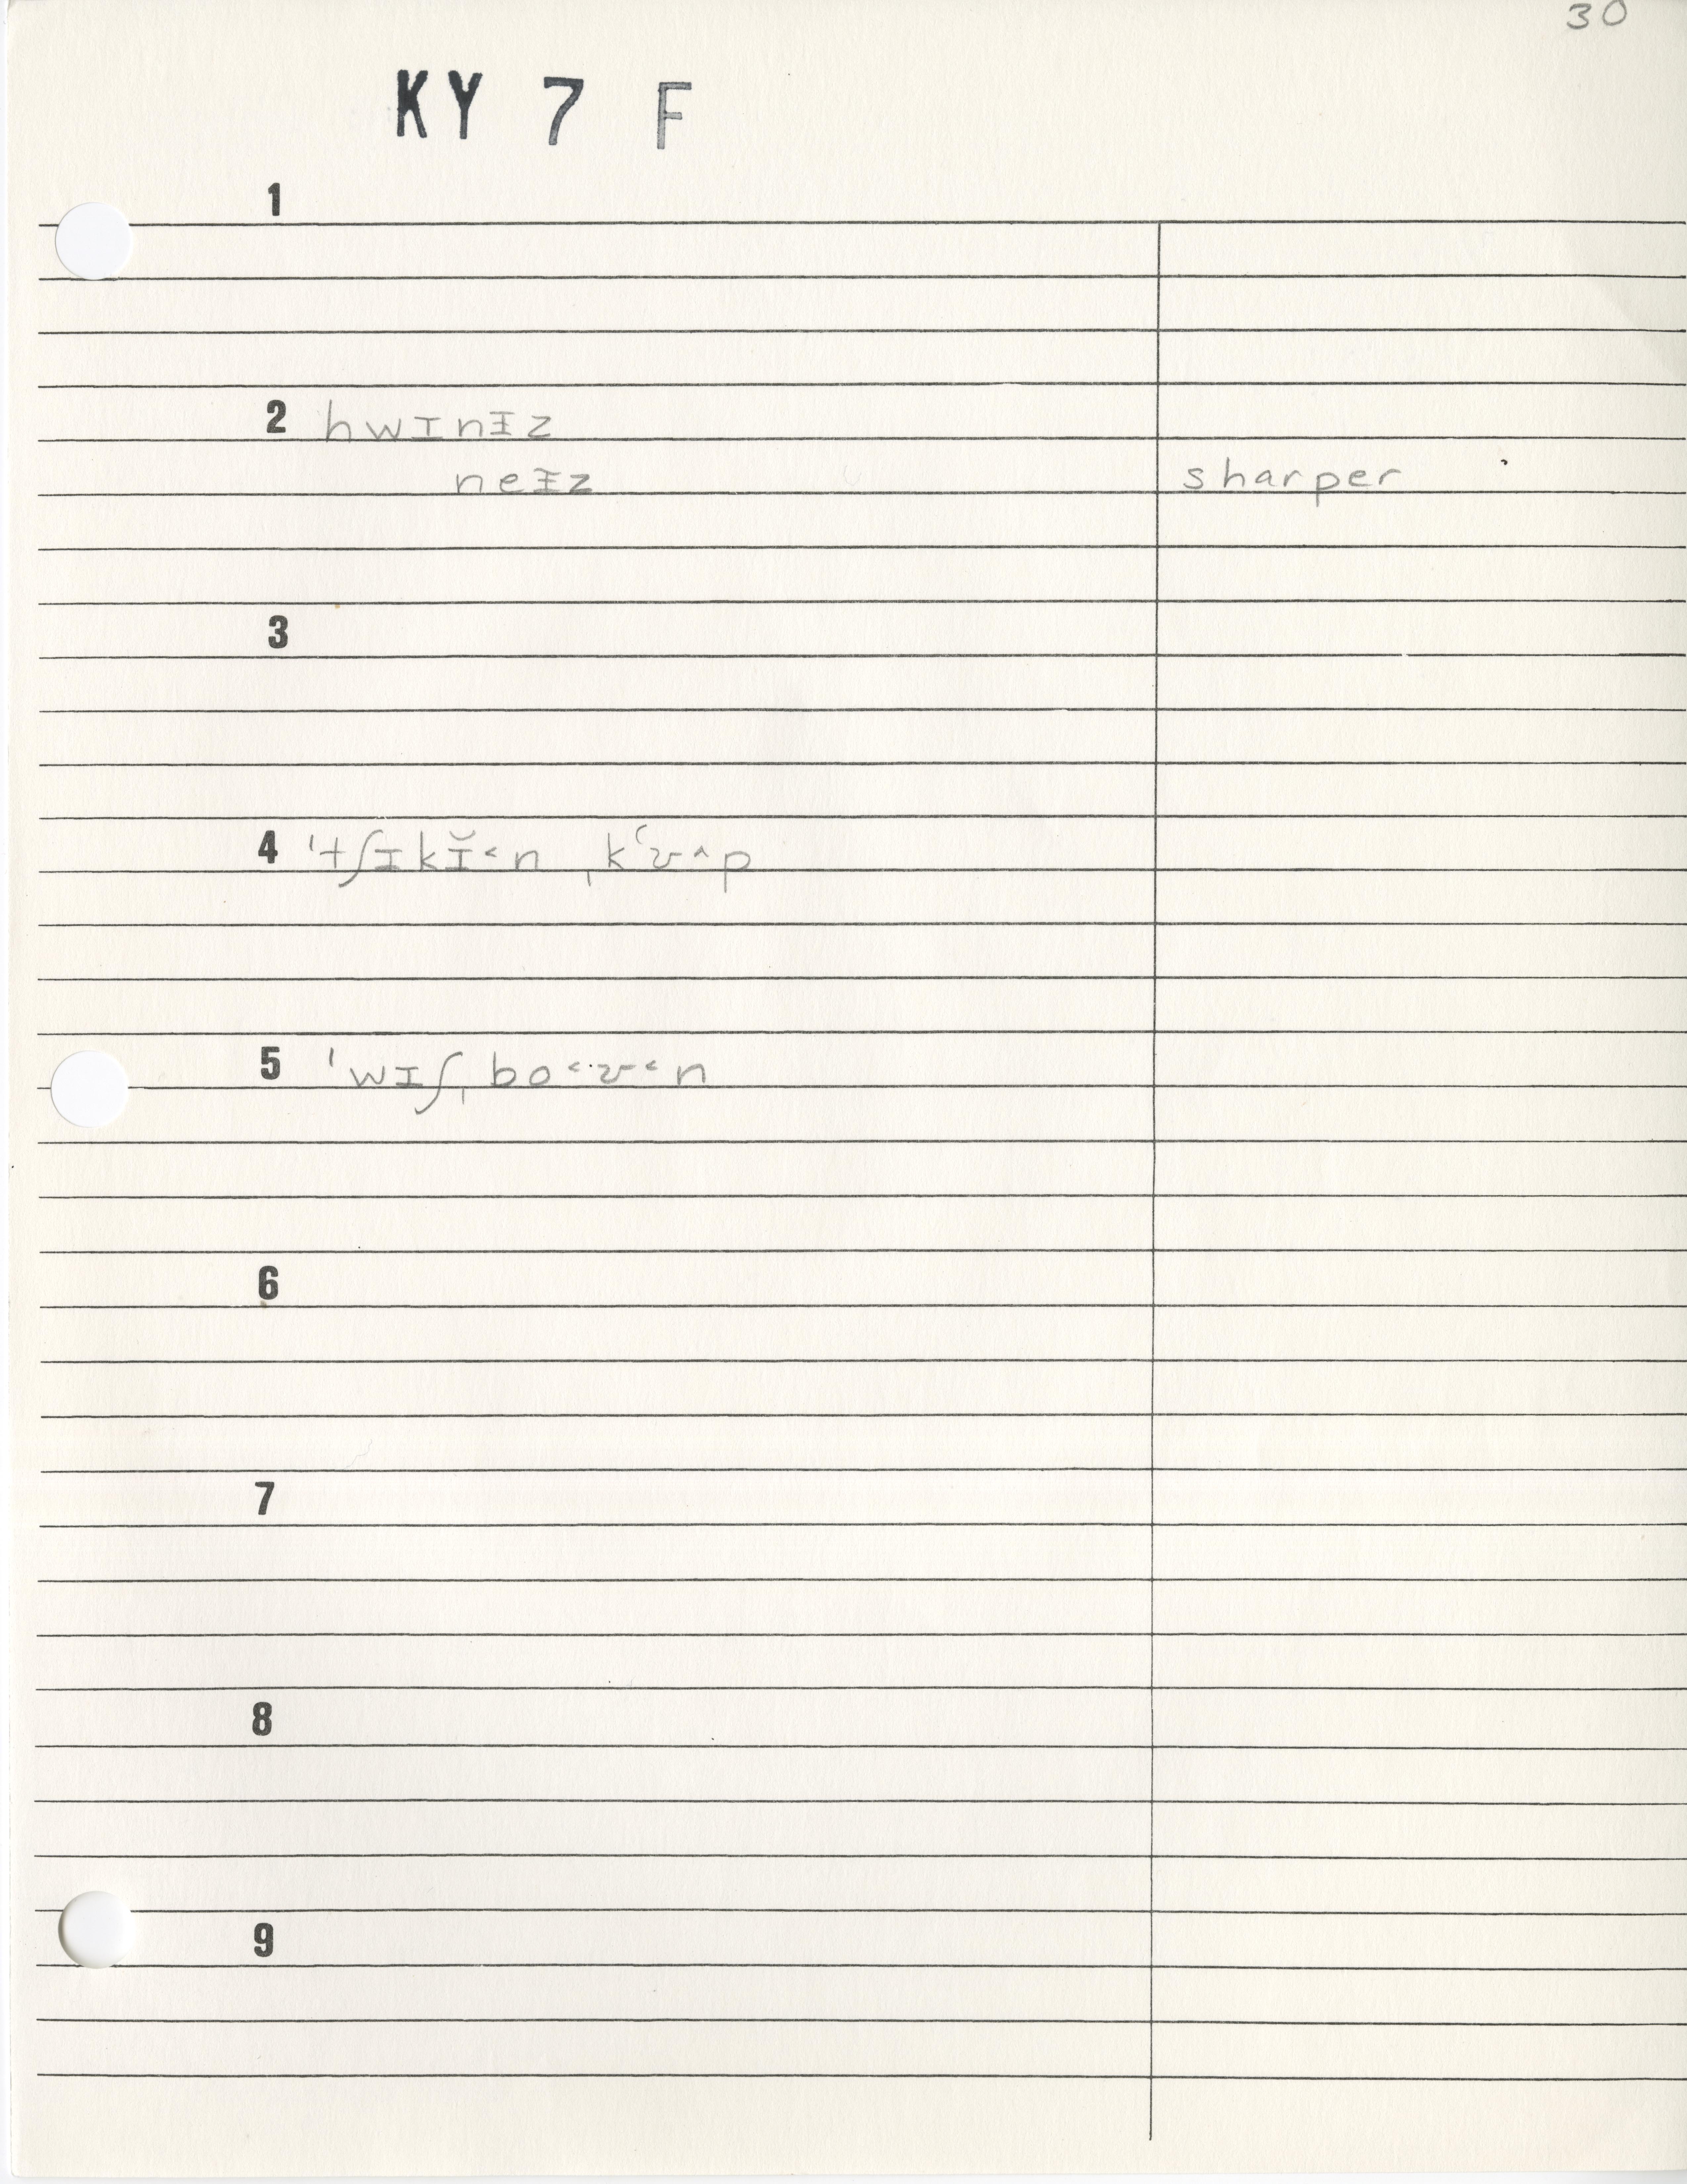 30
KY 7 F
1
2 hwɪnɪ̵z
neɪ̵z sharper
3
4 ˈtʃɪkɪ̆˂n ˌkʿʊ˄p
5 ˈwɪʃˌbo˂·ʊ˂n
6
7
8
9